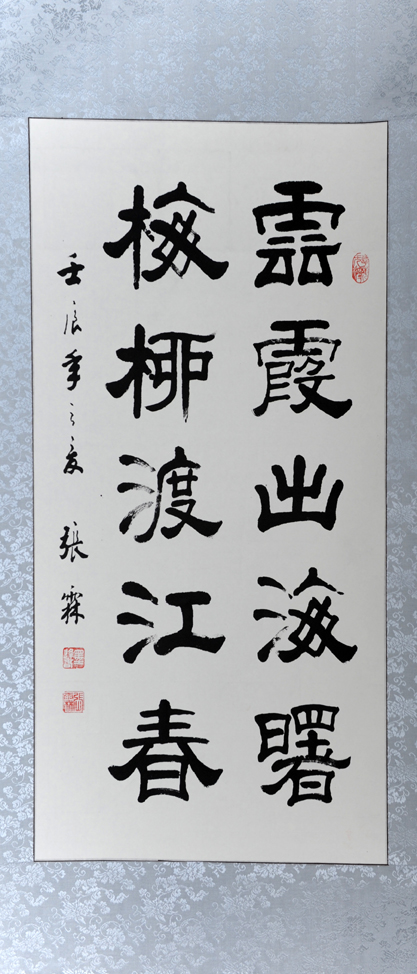 雲霞出海曙
梅柳渡江春
壬辰年之夏 張霖